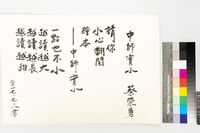 中師實小
蔡榮勇
請你
小心翻閱
繪本
──中師實小
一點也不小
越讀越大
越讀越長
越讀越